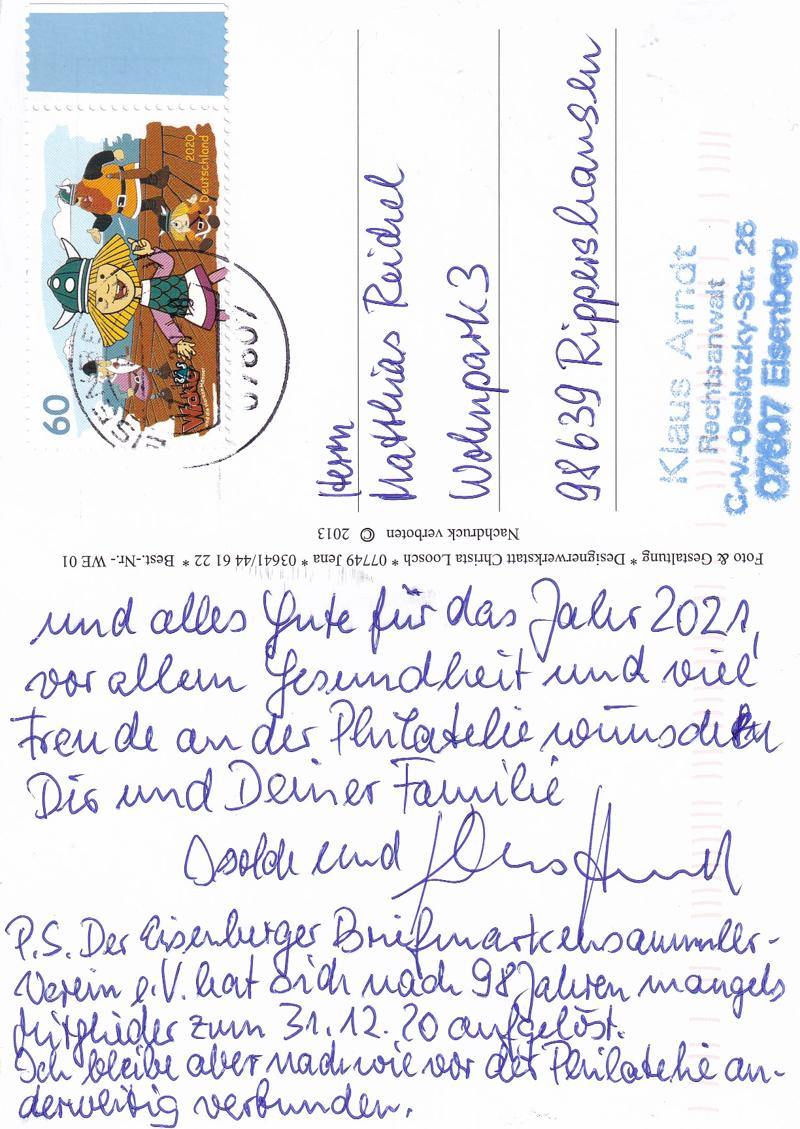 60
2020
Deutschland
Wickie
07607
Herrn
Matthias Reichel
Wohnpark 3
98639 Rippershausen
Klaus Arndt
Rechtsanwalt
C.-v.-Ossietzky-Str. 26
07607 Eisenberg
Nachdruck verboten © 2013
Foto & Gestaltung * Designerwerkstatt Christa Loosch * 07749 Jena * 03641/44 61 22 * Best.-Nr.- WE 01
und alles Gute für das Jahr 2021,
vor allem Gesundheit und viel
Freude an der Philatelie wünschen
Dir und Deiner Familie
Isolde und Klaus Arndt
P.S. Der Eisenberger Briefmarkensammler-
Verein e.V. hat sich nach 98 Jahren mangels
Mitglieder zum 31.12.20 aufgelöst.
Ich bleibe aber nach wie vor der Philatelie an-
derweitig verbunden.